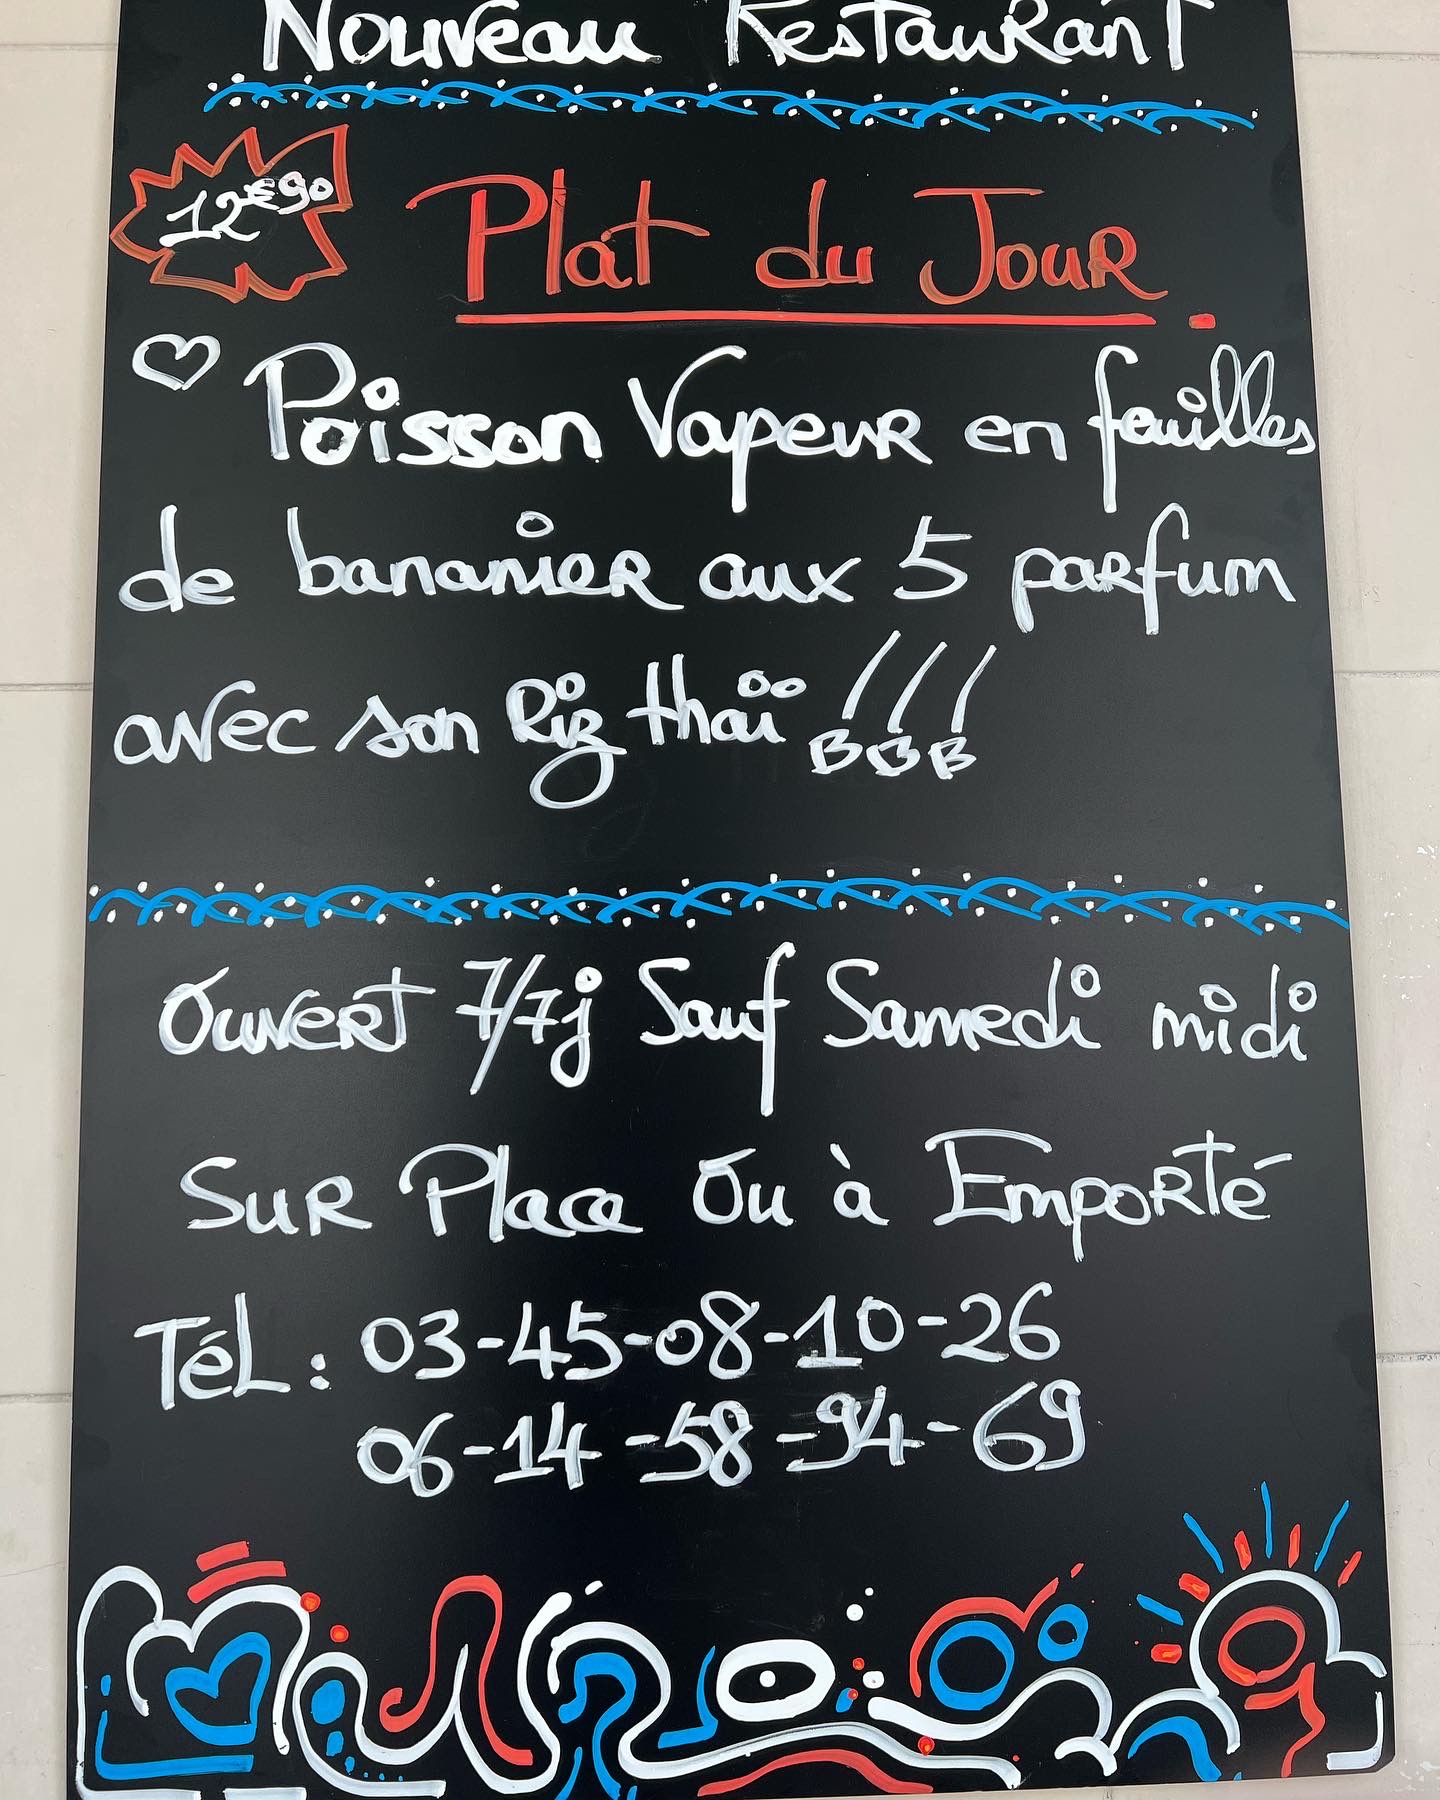 Nouveau Restaurant
12€90
Plat du Jour.
Poisson Vapeur en feuilles
de bananier aux 5 parfum
avec son Riz thaï !!!
Ouvert 7/7j Sauf Samedi midi
Sur Place Ou à Emporté
Tél : 03-45-08-10-26
06-14-58-94-69